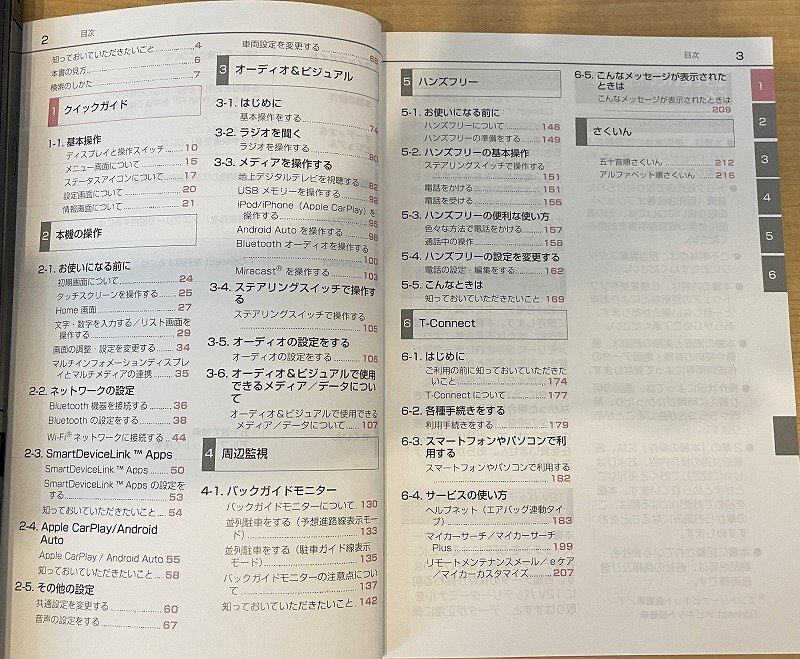 2 目次
知っておいていただきたいこと 4
本書の見方 6
検索のしかた 7
1 クイックガイド
1-1. 基本操作
ディスプレイと操作スイッチ 10
メニュー画面について 15
ステータスアイコンについて 17
設定画面について 20
情報画面について 21
2 本機の操作
2-1. お使いになる前に
初期画面について 24
タッチスクリーンを操作する 25
Home 画面 27
文字・数字を入力する/リスト画面を
操作する 29
画面の調整・設定を変更する 34
マルチインフォメーションディスプレ
イとマルチメディアの連携 35
2-2. ネットワークの設定
Bluetooth 機器を接続する 36
Bluetooth の設定をする 38
Wi-Fi® ネットワークに接続する 44
2-3. SmartDeviceLink ™ Apps
SmartDeviceLink ™ Apps 50
SmartDeviceLink ™ Apps の設定を
する 53
知っておいていただきたいこと 54
2-4. Apple CarPlay/Android
Auto
Apple CarPlay / Android Auto 55
知っておいていただきたいこと 58
2-5. その他の設定
共通設定を変更する 60
音声の設定をする 67
車両設定を変更する 68
3 オーディオ&ビジュアル
3-1. はじめに
基本操作をする 74
3-2. ラジオを聞く
ラジオを操作する 80
3-3. メディアを操作する
地上デジタルテレビを視聴する 82
USB メモリーを操作する 92
iPod/iPhone(Apple CarPlay)を
操作する 95
Android Auto を操作する 96
Bluetooth オーディオを操作する
100
Miracast® を操作する 103
3-4. ステアリングスイッチで操作す
る
ステアリングスイッチで操作する
105
3-5. オーディオの設定をする
オーディオの設定をする 106
3-6. オーディオ&ビジュアルで使用
できるメディア/データについ
て
オーディオ&ビジュアルで使用できる
メディア/データについて 107
4 周辺監視
4-1. バックガイドモニター
バックガイドモニターについて 130
並列駐車をする(予想進路線表示モー
ド) 133
並列駐車をする(駐車ガイド線表示
モード) 135
バックガイドモニターの注意点につい
て 137
知っておいていただきたいこと 142
目次 3
5 ハンズフリー
5-1. お使いになる前に
ハンズフリーについて 146
ハンズフリーの準備をする 149
5-2. ハンズフリーの基本操作
ステアリングスイッチで操作する
151
電話をかける 151
電話を受ける 155
5-3. ハンズフリーの便利な使い方
色々な方法で電話をかける 157
通話中の操作 158
5-4. ハンズフリーの設定を変更する
電話の設定・編集をする 162
5-5. こんなときは
知っておいていただきたいこと 169
6 T-Connect
6-1. はじめに
ご利用の前に知っておいていただきた
いこと 174
T-Connect について 177
6-2. 各種手続きをする
利用手続きをする 179
6-3. スマートフォンやパソコンで利
用する
スマートフォンやパソコンで利用する
182
6-4. サービスの使い方
ヘルプネット(エアバッグ連動タイ
プ) 183
マイカーサーチ/マイカーサーチ
Plus 199
リモートメンテナンスメール/eケア
/マイカーカスタマイズ 207
6-5. こんなメッセージが表示された
ときは
こんなメッセージが表示されたときは
209
さくいん
五十音順さくいん 212
アルファベット順さくいん 216
1
2
3
4
5
6